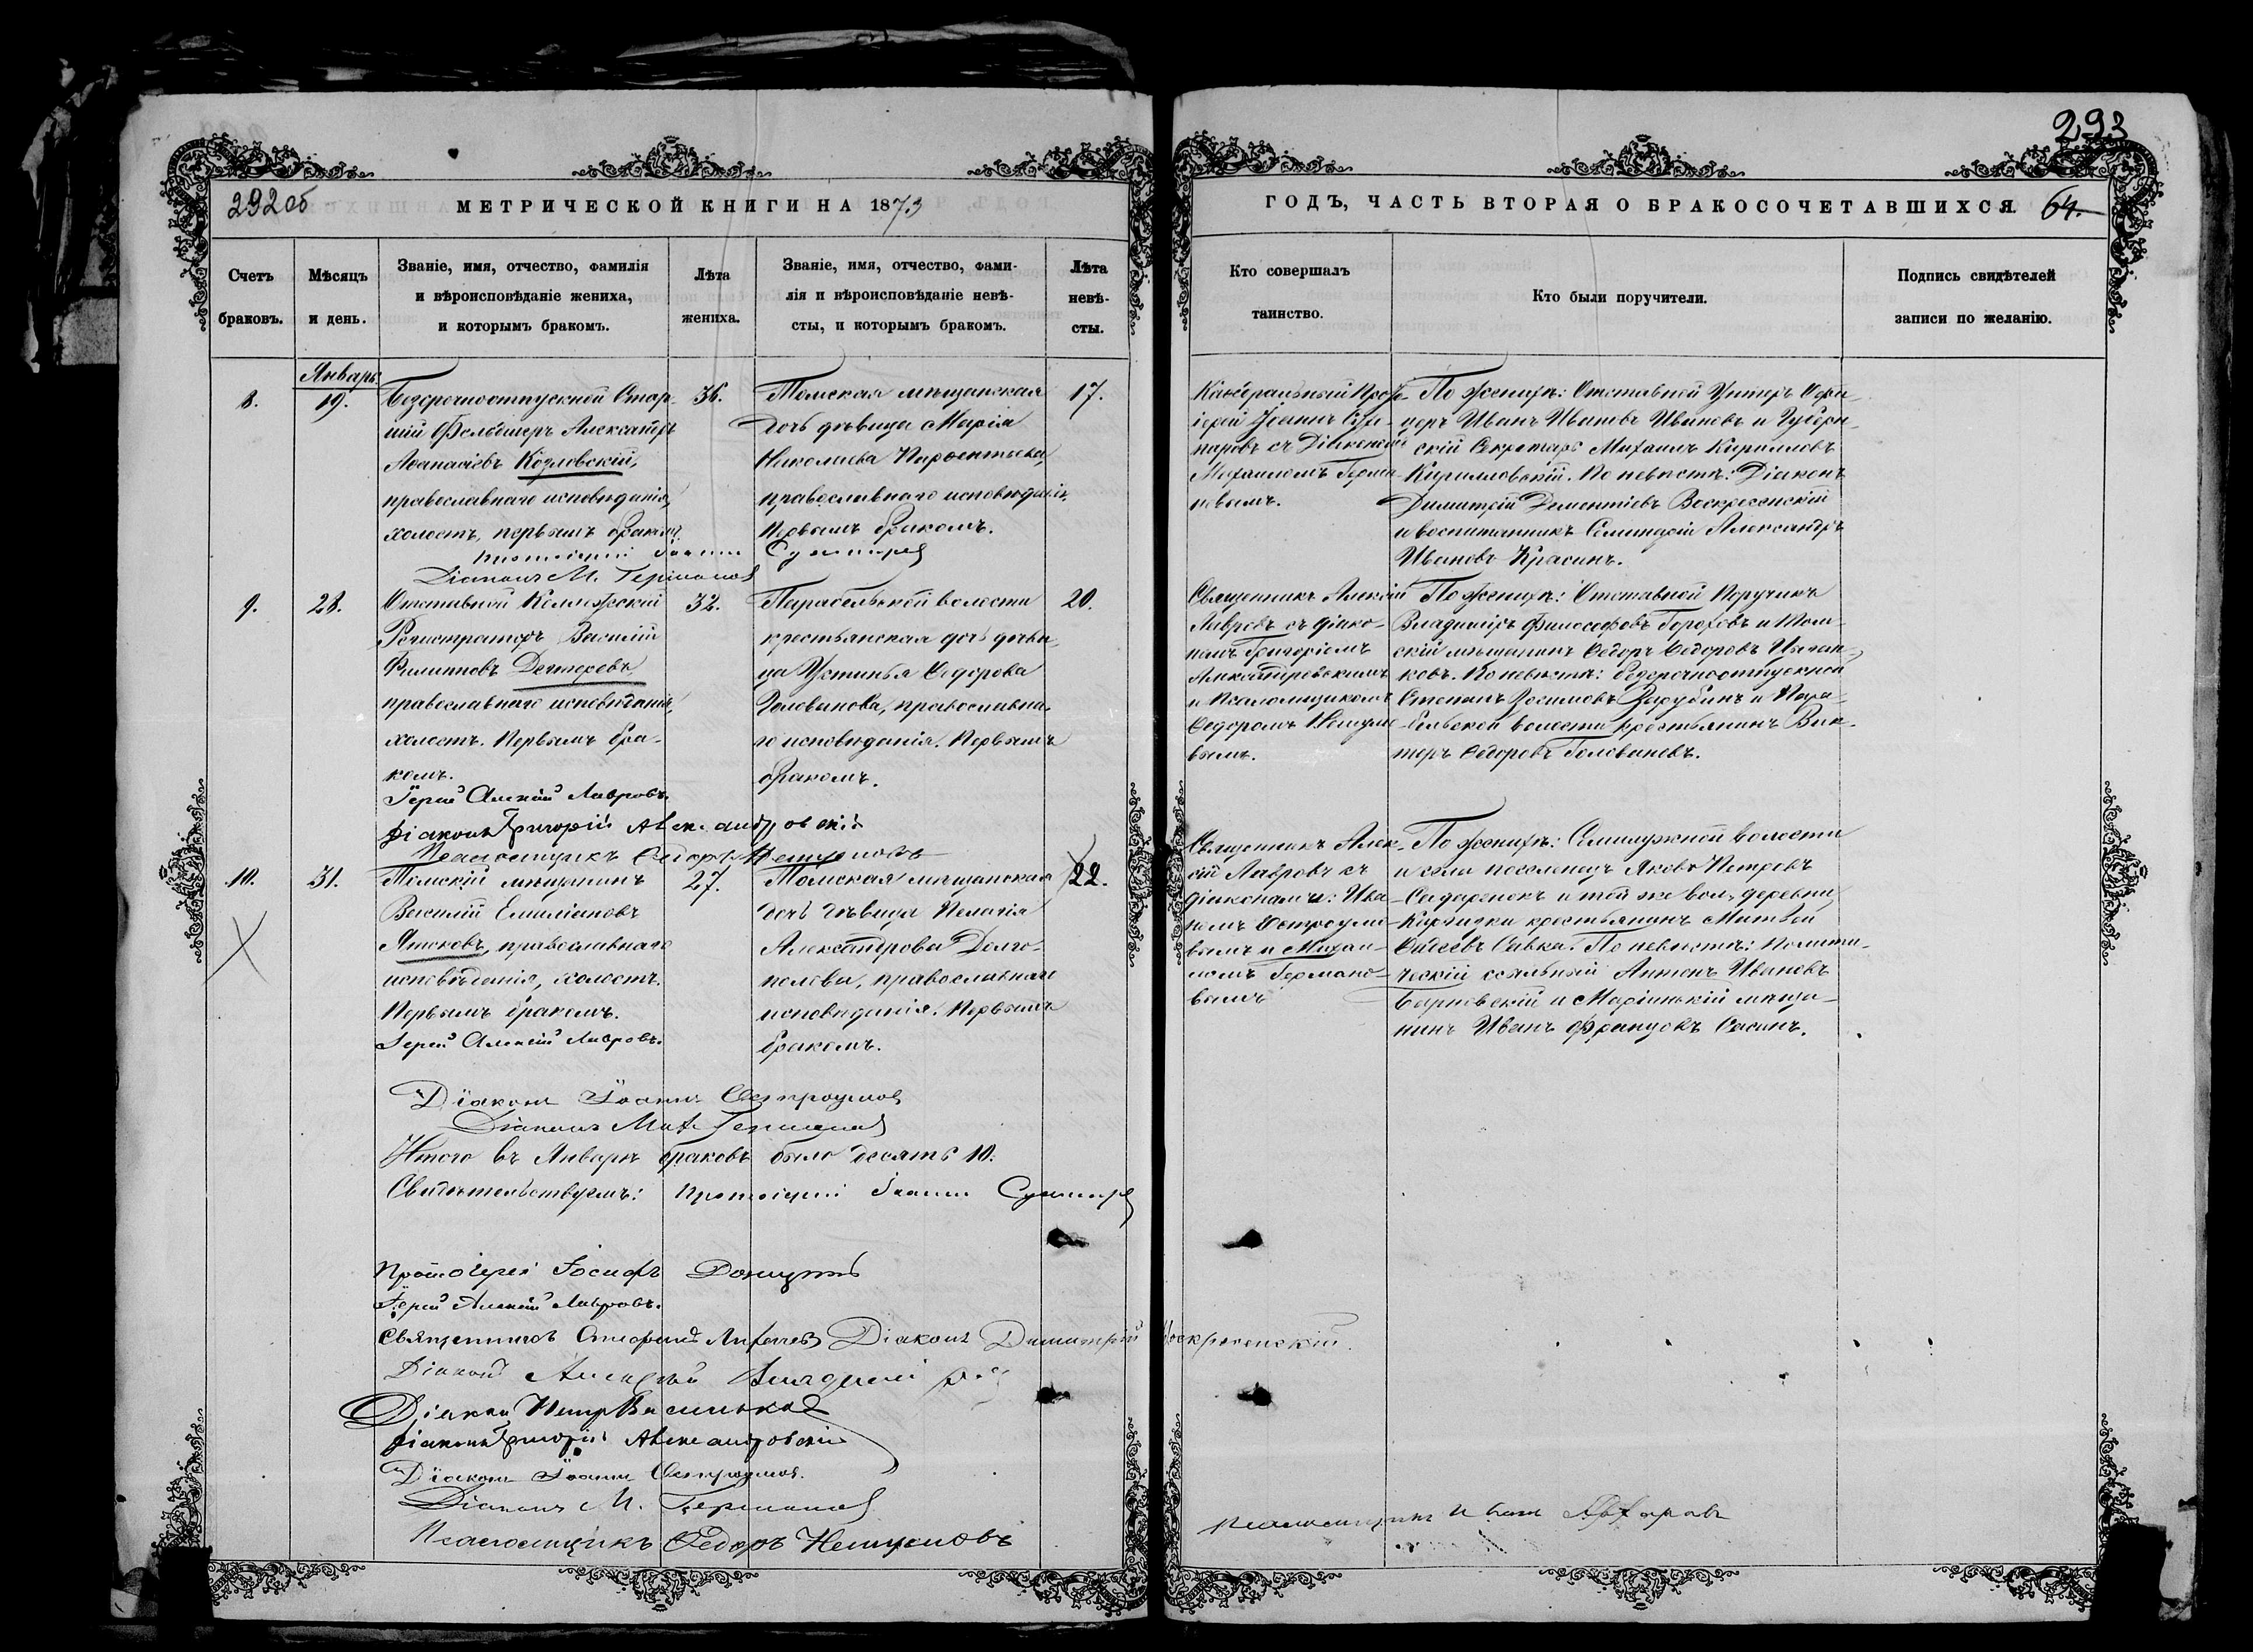 293
292 об
МЕТРИЧЕСКОЙ КНИГИ НА 1873
ГОДЪ, ЧАСТЬ ВТОРАЯ О БРАКОСОЧЕТАВШИХСЯ.
64.
Счетъ
браковъ.
Мѣсяцъ
и день.
Званіе, имя, отчество, фамилія
и вѣроисповѣданіе жениха,
и которымъ бракомъ.
Лѣта
жениха.
Званіе, имя, отчество, фами-
лія и вѣроисповѣданіе невѣ-
сты, и которымъ бракомъ.
Лѣта
невѣ-
сты.
Кто совершалъ
таинство.
Кто были поручители.
Подпись свидѣтелей
записи по желанію.
Январь
8.
19.
Безсрочноотпускной Стар-
шій Фельдшеръ Александръ
Аѳанасіевъ Козловскій,
православнаго исповѣданія,
холостъ, первымъ бракомъ.
36.
Томская мѣщанская
дочь дѣвица Марія
Николаева
православнаго исповѣданія,
Первымъ бракомъ.
17.
Каѳедральный Прото-
іерей Іоаннъ
съ Діакономъ
Михаиломъ Герма-
новымъ.
По женихѣ: Отставной Унтеръ Офи-
церъ Иванъ Ивановъ Ивановъ и Губерн-
скій Секретарь Михаилъ Кирилловъ
Кирилловскій. По невѣстѣ: Діаконъ
Димитрій Дементіевъ Воскресенскій
и воспитанникъ Семинаріи Александръ
Ивановъ Красинъ.
Протоіерей Іоаннъ
Діаконъ М. Германовъ
9.
28.
Отставной Коллежскій
Регистраторъ Василій
Филипповъ
православнаго исповѣданія,
холостъ. Первымъ бра-
комъ.
32.
Парабельской волости
крестьянская дочь дѣви-
ца Устинья Ѳедорова
Голованова, православна-
го исповѣданія. Первымъ
бракомъ.
20.
Священникъ Алексій
Лавровъ съ діако-
номъ Григоріемъ
Александровскимъ
и Псаломщикомъ
Ѳедоромъ
вымъ.
По женихѣ: Отставной Поручикъ
Владиміръ Философовъ Гороховъ и Том-
скій мѣщанинъ Ѳедоръ Ѳедоровъ Цыган-
ковъ. По невѣстѣ: безсрочноотпускной
Степанъ Зосимовъ Зарубинъ и Пара-
бельской волости крестьянинъ Вик-
торъ Ѳедоровъ Головановъ.
Іерей Алексій Лавровъ.
Діаконъ Григорій Александровскій
Псаломщикъ Ѳедоръ
10.
31.
Томскій мѣщанинъ
Василій Емиліановъ
православнаго
исповѣданія, холостъ.
Первымъ бракомъ.
27.
Томская мѣщанская
дочь дѣвица Пелагія
Александрова Долго-
полова, православнаго
исповѣданія. Первымъ
бракомъ.
22.
Священникъ Алек-
сій Лавровъ съ
діаконами: Ива-
номъ Остроумо-
вымъ и Михаи-
ломъ Германо-
вымъ
По женихѣ: Семилужной волости
и села поселенецъ Яковъ Петровъ
Сидоренокъ и той же вол. деревни
крестьянинъ Матвей
Савка. По невѣстѣ: Полити-
ческій ссыльный Антонъ Ивановъ
и Маріинскій мѣща-
нинъ Иванъ
Іерей Алексій Лавровъ.
Діаконъ Іоаннъ Остроумовъ
Діаконъ Мих. Германовъ
Итого въ Январѣ браковъ было десять 10.
Свидѣтельствуемъ: Протоіерей Іоаннъ
Протоіерей Іосифъ
Іерей Алексій Лавровъ.
Священникъ Діаконъ Димитрій Воскресенскій.
Діаконъ
Діаконъ Петръ Васильковъ
Діаконъ Григорій Александровскій
Діаконъ Іоаннъ Остроумовъ.
Діаконъ М. Германовъ
Псаломщикъ Ѳедоръ
Псаломщикъ Иванъ